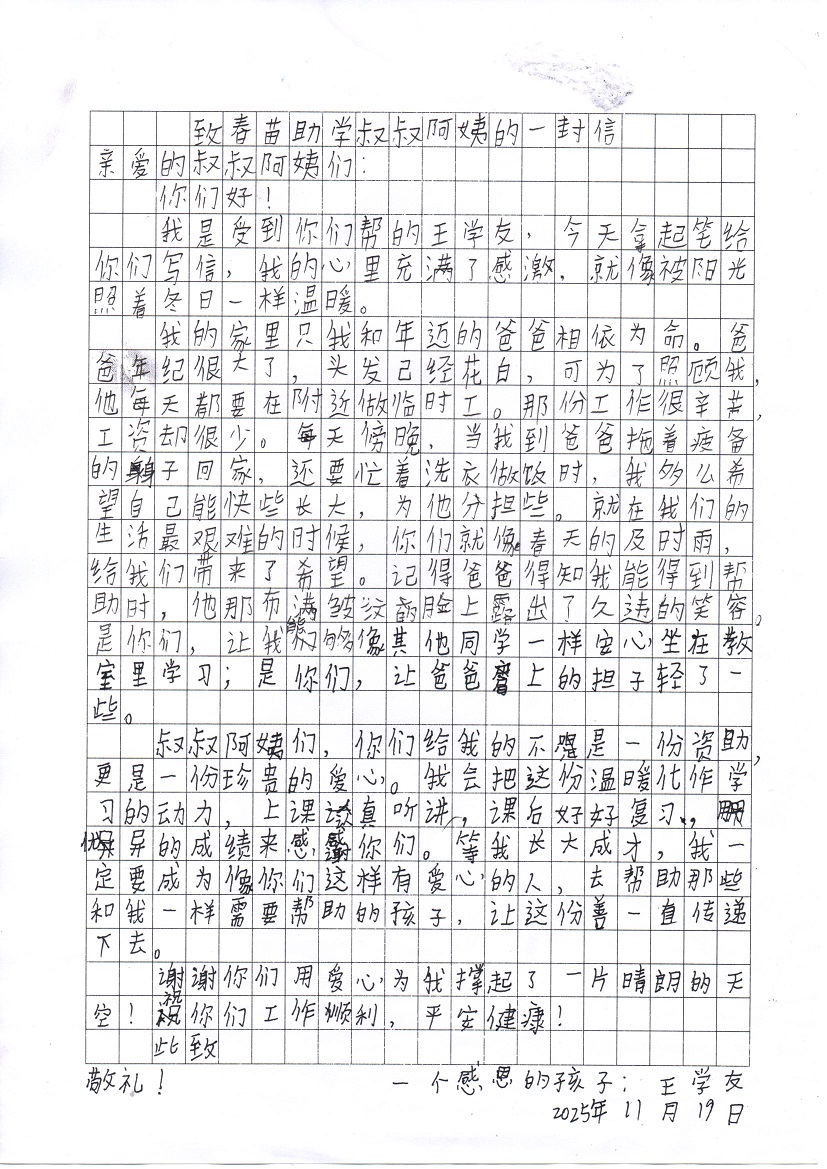 致春苗助学叔叔阿姨的一封信
亲爱的叔叔阿姨们：
你们好！
我是受到你们帮的王学友，今天拿起笔给
你们写信，我的心里充满了感激，就像被阳光
照着冬日一样温暖。
我的家里只我和年迈的爸爸相依为命。爸
爸年纪很大了，头发已经花白，可为了照顾我，
他每天都要在附近做临时工。那份工作很辛苦，
工资却很少。每天傍晚，当我到爸爸拖着疲备
的身子回家，还要忙着洗衣做饭时，我多么希
望自己能快些长大，为他分担些。就在我们的
生活最艰难的时候，你们就像春天的及时雨，
给我们带来了希望。记得爸爸得知我能得到帮
助时，他那布满皱纹的脸上露出了久违的笑容。
是你们，让我能够像其他同学一样安心坐在教
室里学习；是你们，让爸爸肩上的担子轻了一
些。
叔叔阿姨们，你们给我的不是一份资助，
更是一份珍贵的爱心。我会把这份温暖化作学
习的动力，上课认真听讲，课后好好复习，用
优异的成绩来感谢你们。等我长大成才，我一
定要成为像你们这样有爱心的人，去帮助那些
和我一样需要帮助的孩子，让这份善一直传递
下去。
谢谢你们用爱心为我撑起了一片晴朗的天
空！祝你们工作顺利，平安健康！
些致
敬礼！ 一个感恩的孩子：王学友
2025年11月19日